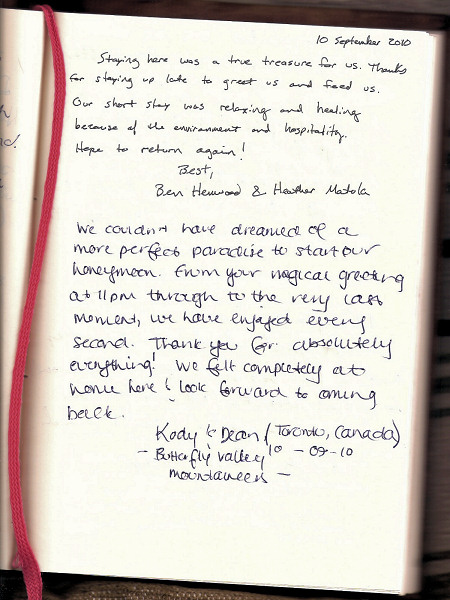 10 September 2010
Staying here was a true treasure for us. Thanks
for staying up late to greet us and feed us.
Our short stay was relaxing and healing
because of the environment and hospitality.
Hope to return again!
Best,
Ben Henwood & Heather Matola
We couldn't have dreamed of a
more perfect paradise to start our
honeymoon. From your magical greeting
at 11pm through to the very last
moment, we have enjoyed every
second. Thank you for absolutely
everything! We felt completely at
home here & look forward to coming
back.
Kody & Dean (Toronto, Canada)
- Butterfly Valley 10 - 09 - 10
mountaneers -